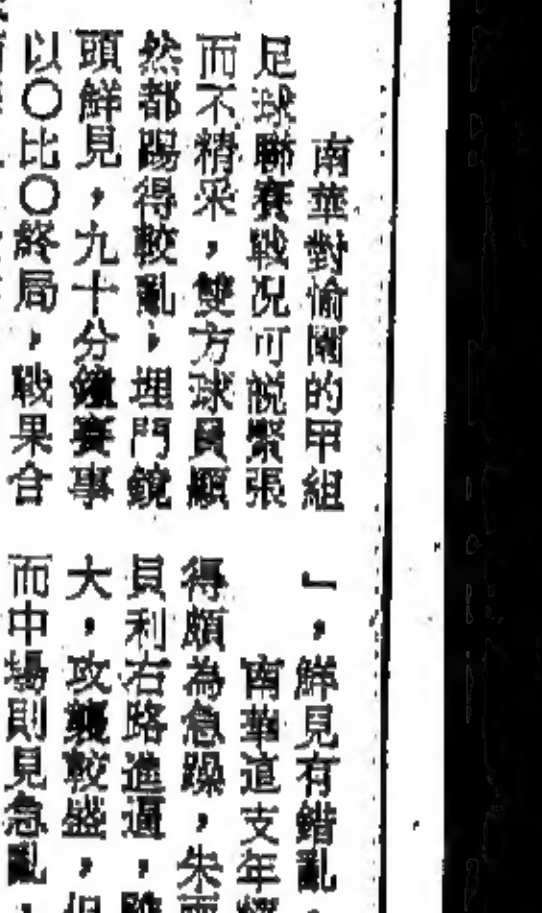 南華對愉園的甲組
足球聯賽戰況可說緊張
而不精采，雙方球員顯
然都踢得較亂，埋門鏡
頭鮮見，九十分鐘賽事
以○比○終局，戰果含
」，鮮見有錯亂
南華這支年
得頗為急躁，朱
貝利右路進逼，
大，攻襲較盛，但
而中場則見急亂，